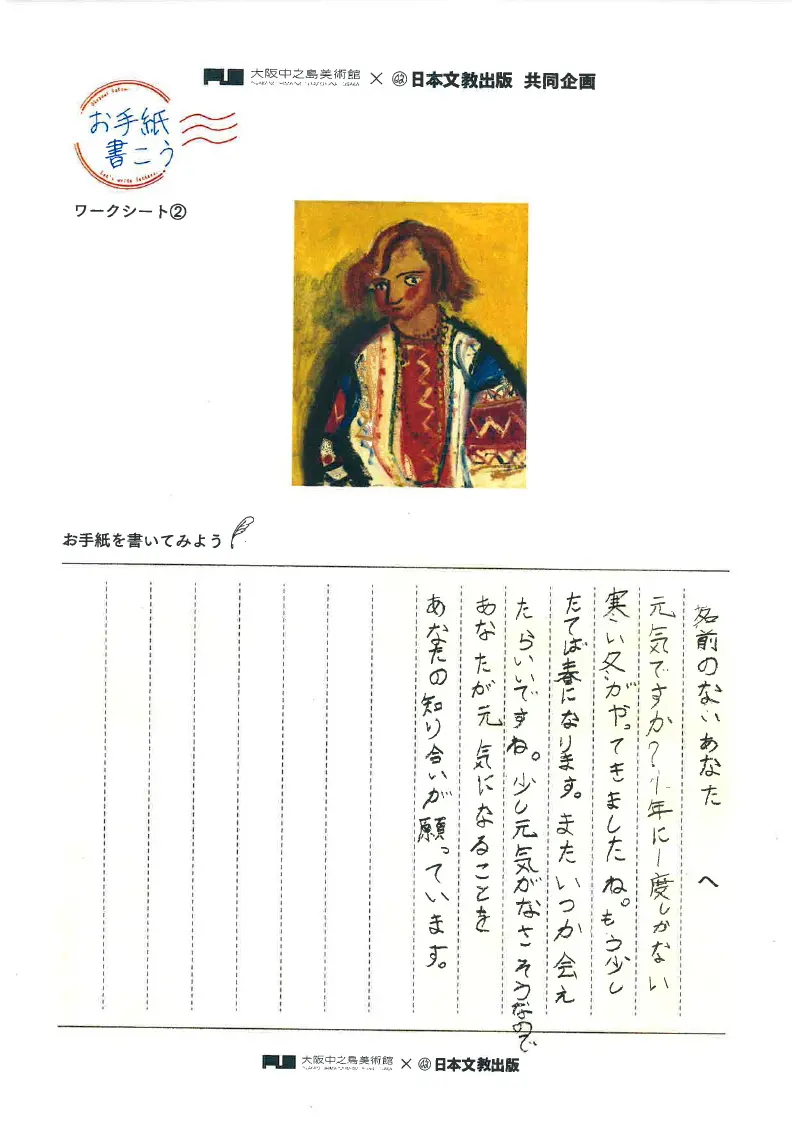 大阪中之島美術館 × 日本文教出版 共同企画
お手紙
書こう
ワークシート②
お手紙を書いてみよう
名前のないあなた へ
元気ですか?1年に1度しかない
寒い冬がやってきましたね。もう少し
たてば春になります。またいつか会え
たらいいですね。少し元気がなさそうなので
あなたが元気になることを
あなたの知り合いが願っています。
大阪中之島美術館 × 日本文教出版